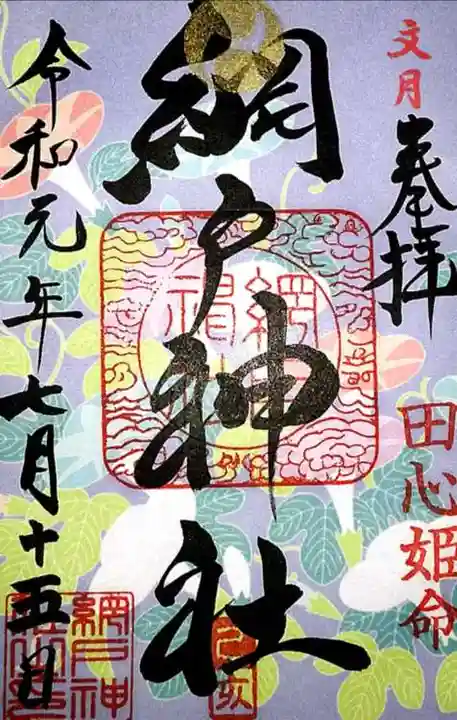 文月
奉拝
田心姫命
網戸神社
己亥
令和元年七月十五日
網戸神